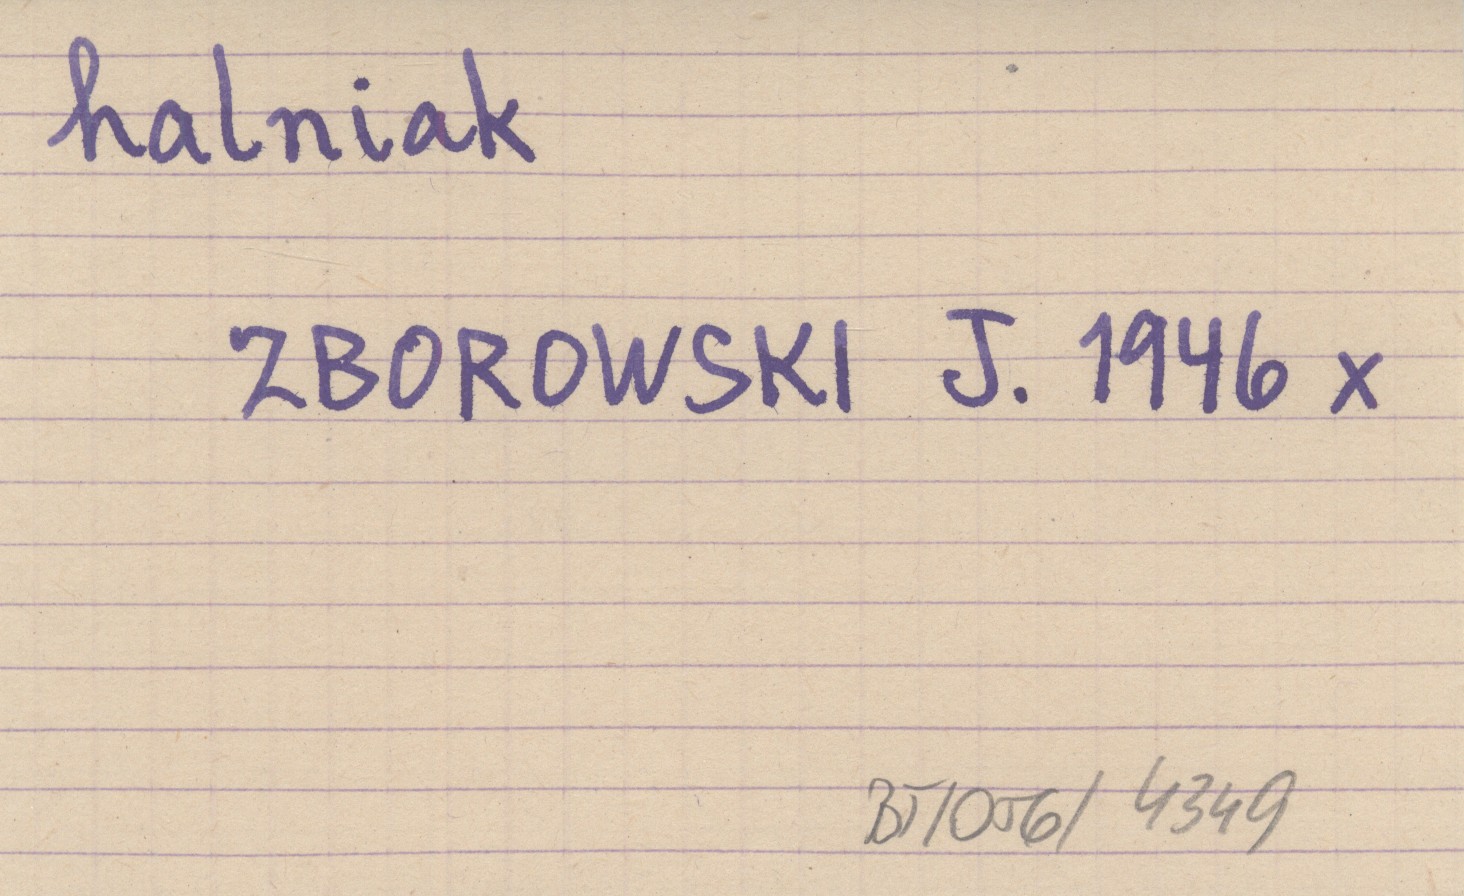 halniak
ZBOROWSKI J. 1946 x
BJ/OJG/ 4349